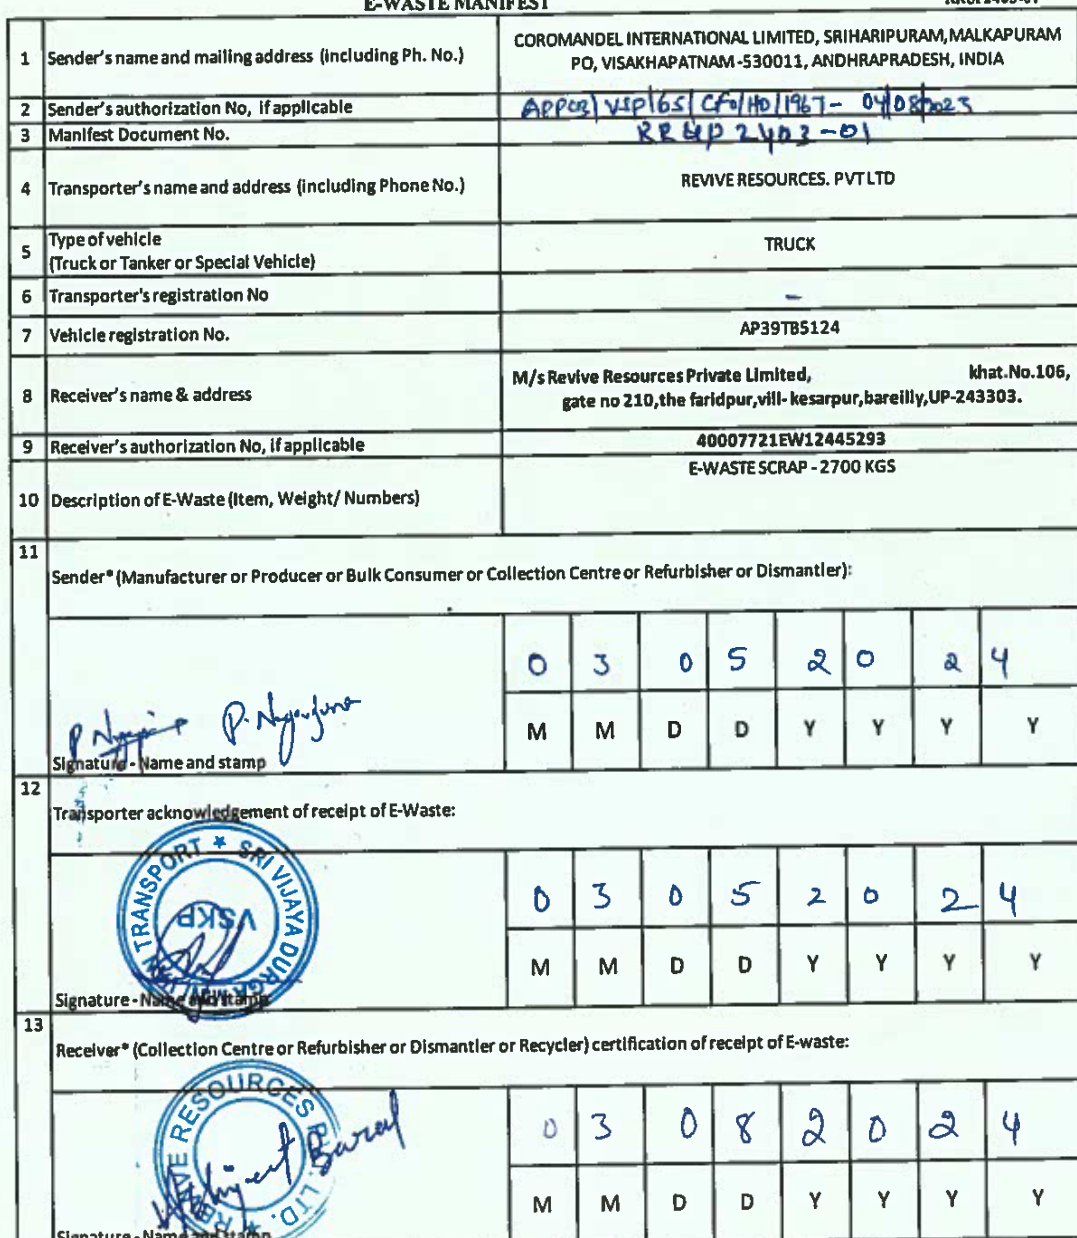 E-WASTE MANIFEST
1 Sender's name and mailing address (including Ph. No.) COROMANDEL INTERNATIONAL LIMITED, SRIHARIPURAM, MALKAPURAM
PO, VISAKHAPATNAM-530011, ANDHRAPRADESH, INDIA
2 Sender's authorization No, if applicable APPCB/VSP/65/CFO/HO/1967- 04/08/2023
3 Manifest Document No. RRUP2403-01
4 Transporter's name and address (including Phone No.) REVIVE RESOURCES. PVT LTD
5 Type of vehicle
(Truck or Tanker or Special Vehicle) TRUCK
6 Transporter's registration No -
7 Vehicle registration No. AP39TB5124
8 Receiver's name & address M/s Revive Resources Private Limited, khat.No.106,
gate no 210,the faridpur,vill- kesarpur,bareilly,UP-243303.
9 Receiver's authorization No, if applicable 40007721EW12445293
10 Description of E-Waste (Item, Weight/ Numbers) E-WASTE SCRAP - 2700 KGS
11
Sender* (Manufacturer or Producer or Bulk Consumer or Collection Centre or Refurbisher or Dismantler):
0 3 0 5 2 0 2 4
P. Nagarjuna
M M D D Y Y Y Y
Signature - Name and stamp
12
Transporter acknowledgement of receipt of E-Waste:
SRI VIJAYA DURGA TRANSPORT
VSKP
0 3 0 5 2 0 2 4
M M D D Y Y Y Y
Signature - Name and stamp
13
Receiver* (Collection Centre or Refurbisher or Dismantler or Recycler) certification of receipt of E-waste:
REVIVE RESOURCES P. LTD.
0 3 0 8 2 0 2 4
M M D D Y Y Y Y
Signature - Name and stamp